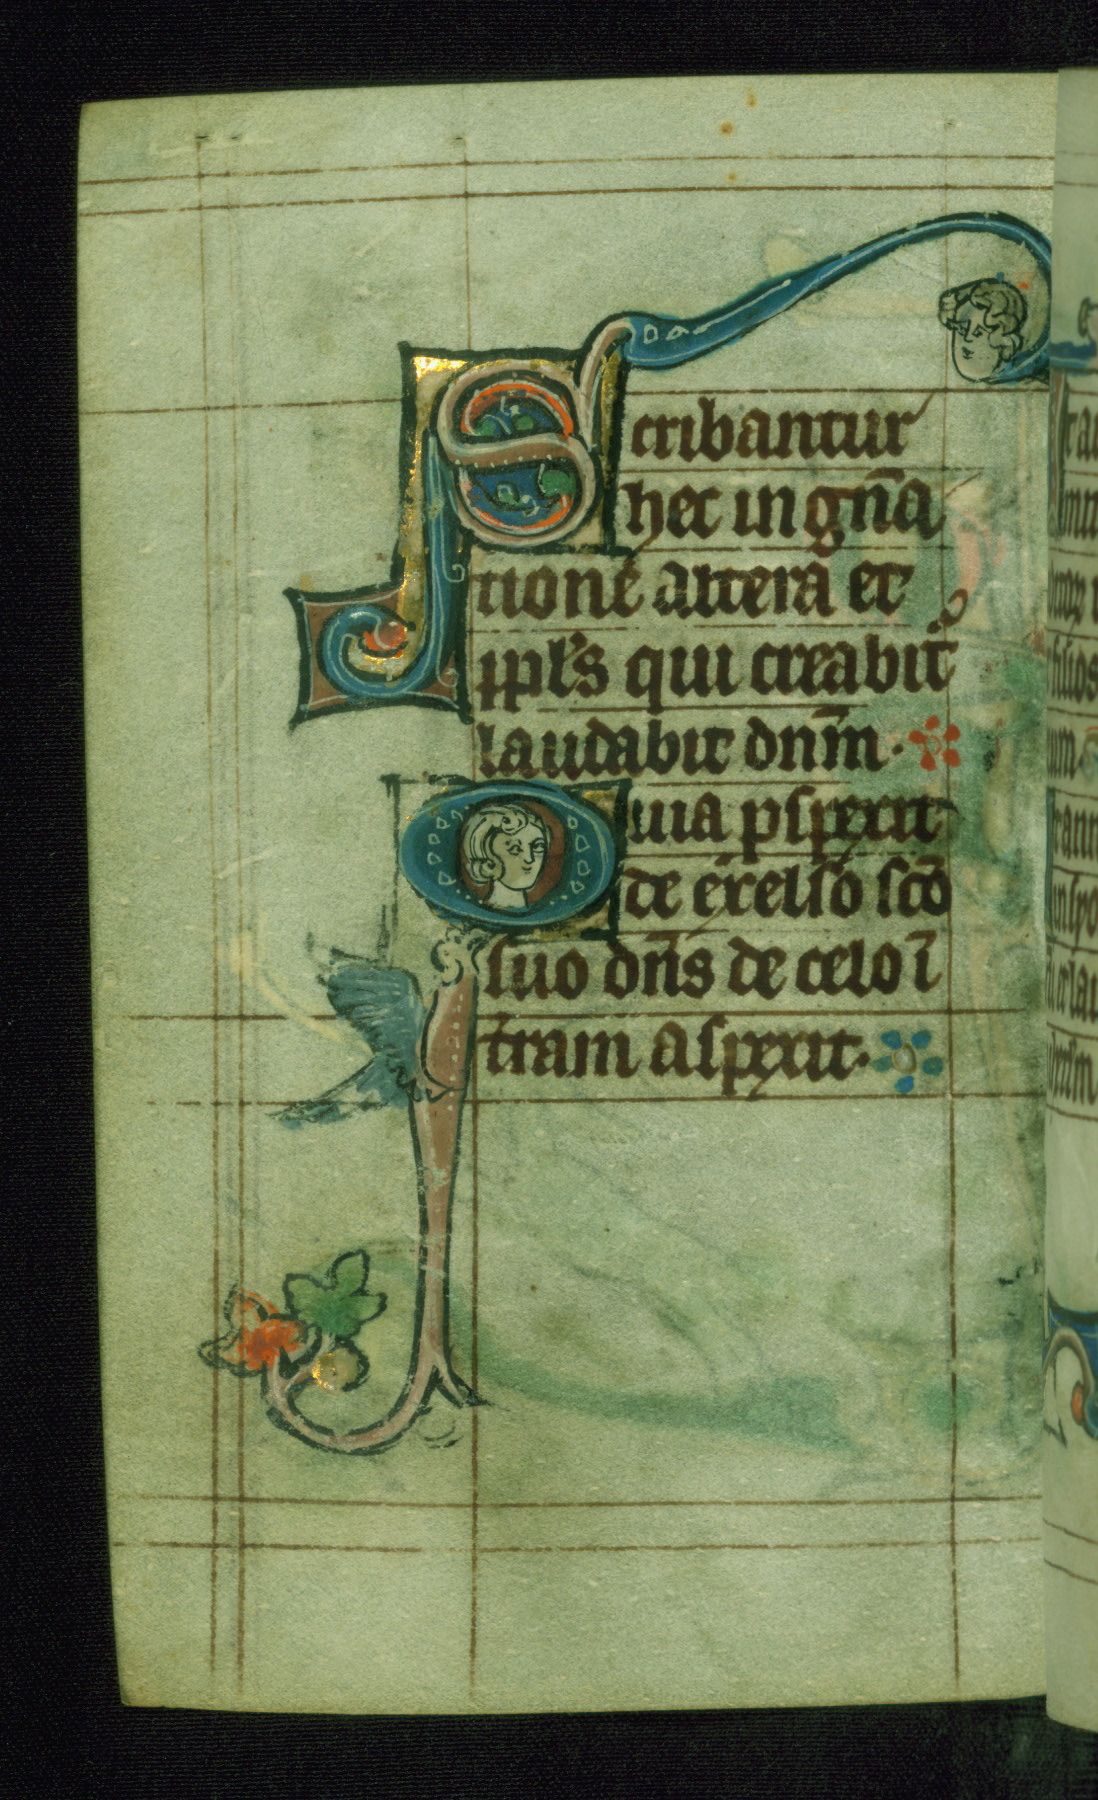 Scribantur
hec in gn̄a
tione altera et
ppl's qui creabit̄
laudabit dn̄m.
Quia pspexit
de excelso sc̄o
suo dn̄s de celo ī
t̄ram aspexit.